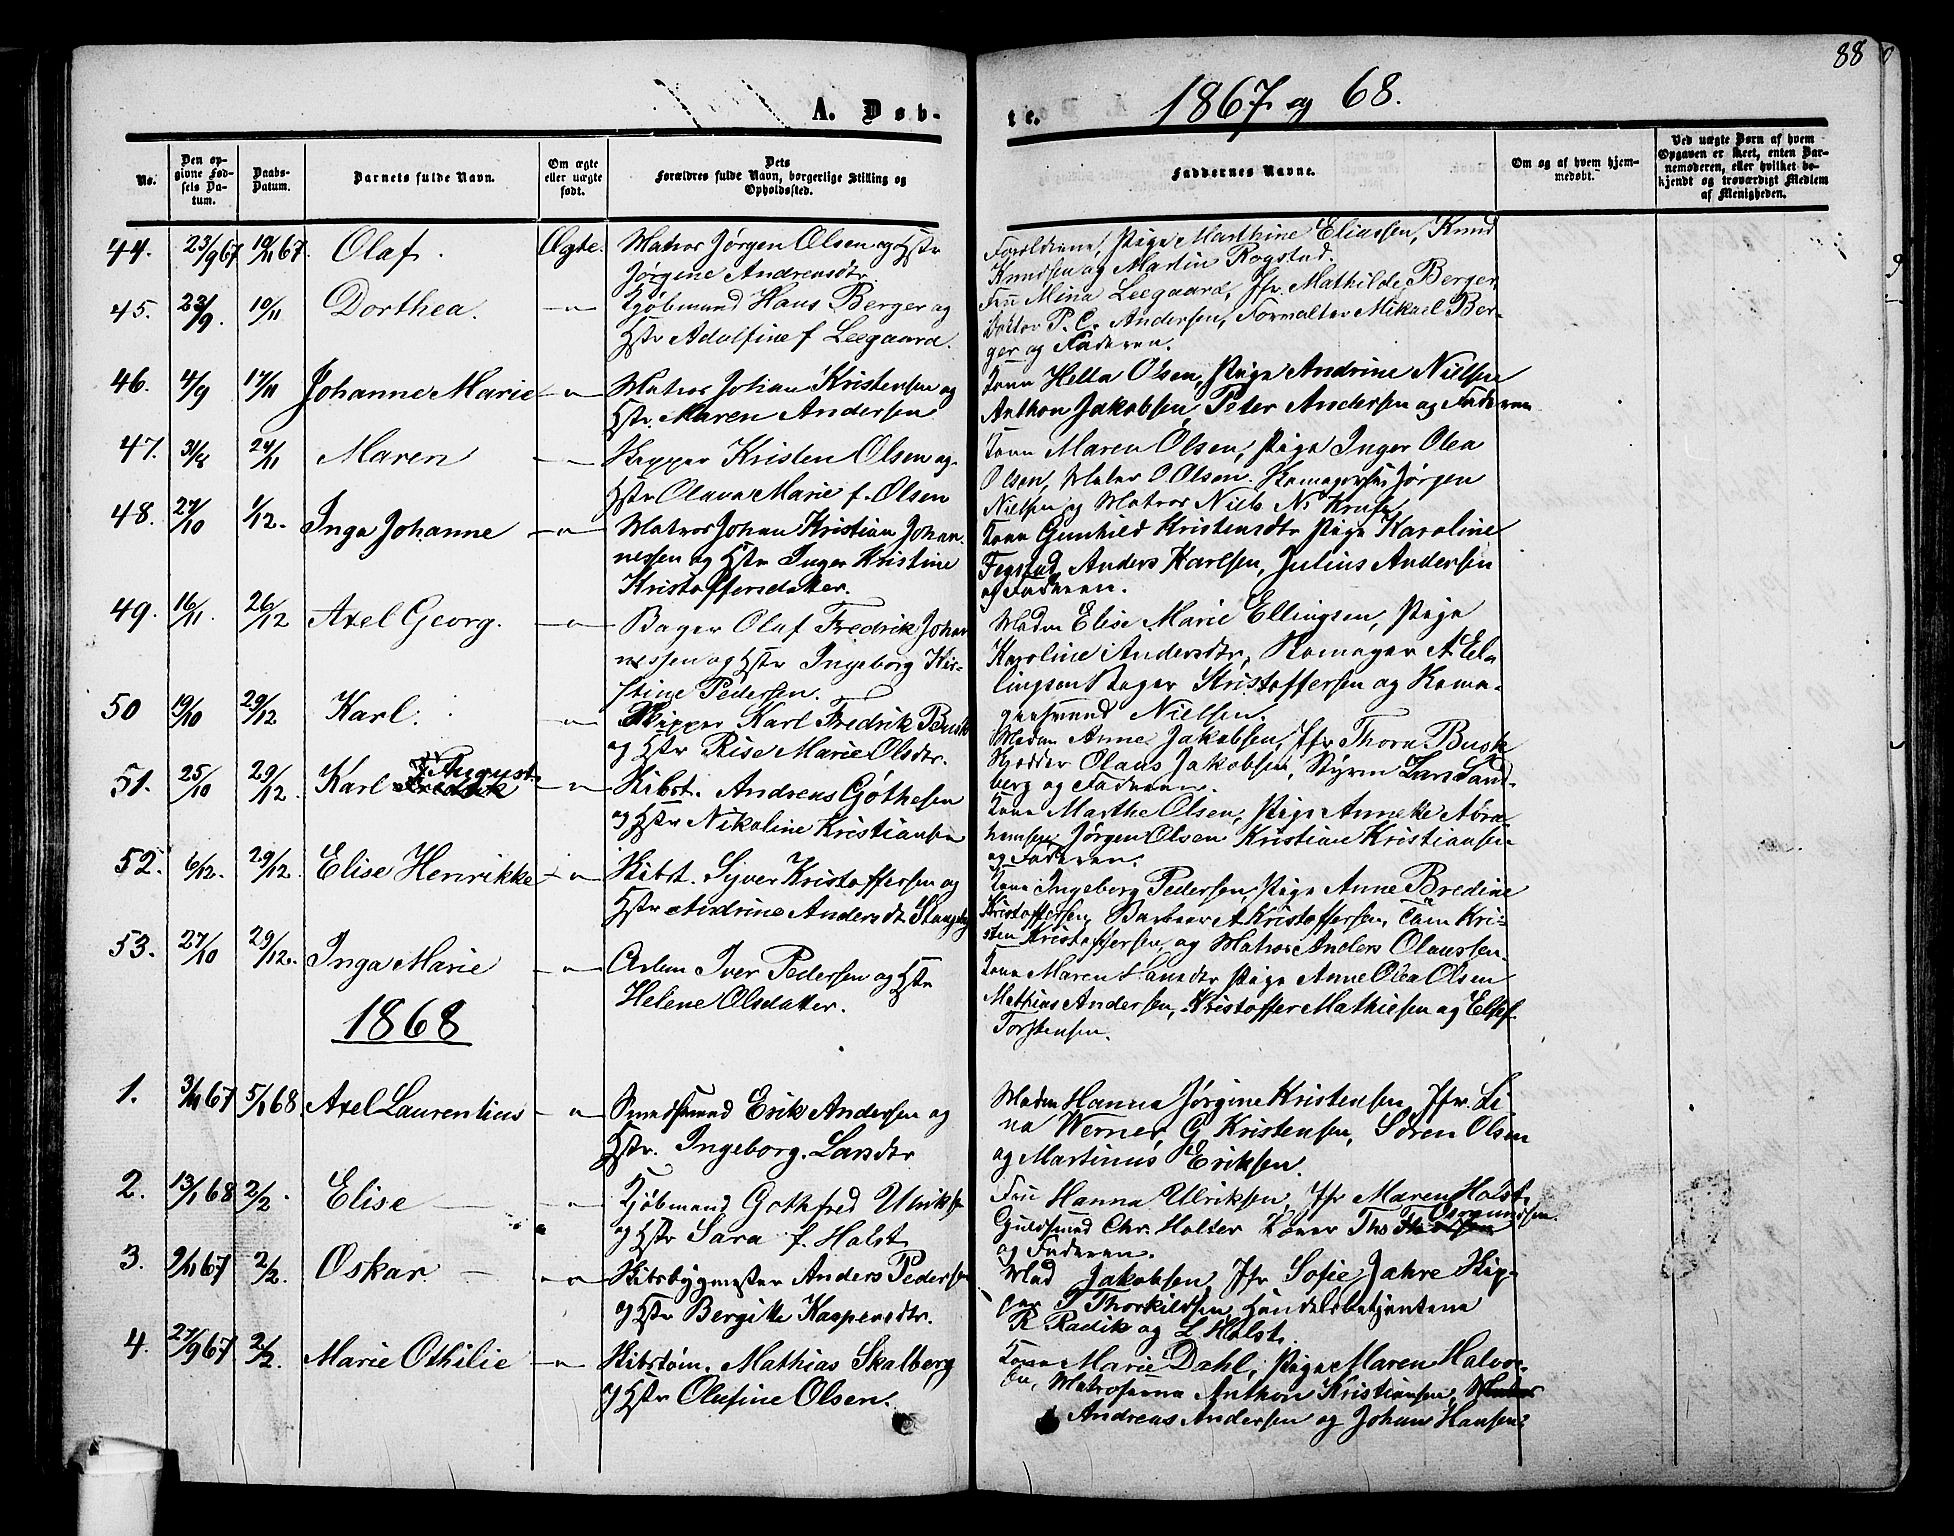 88
A. Døb-
te.
1867 og 68.
No.
Den op-
givne Fød-
sels Da-
tum.
Daabs-
Datum.
Barnets fulde Navn.
Om ægte
eller uægte
født.
Dets
Forældres fulde Navn, borgerlige Stilling og
Opholdssted.
Faddernes Navne.
Om og af hvem hjem-
medøbt.
Ved uægte Børn af hvem
Opgaven er skeet, enten Bar-
nemoderen, eller hvilket be-
kjendt og troværdigt Medlem
af Menigheden.
44. 23/9 67 10/11 67. Olaf. Ægte. Matros Jørgen Olsen og Hstr
Jørgine Andreasdtr
Forældrene, Pige Marthine Eliassen, Knud
Knudsen og Martin Rogstad.
45. 23/9. 10/11 Dorthea. -"- Kjøbmand Hans Berger og
Hstr Adolfine f Leegaard.
Fru Mina Leegaard, Jfr. Mathilde Berger,
Doktor P. C. Andersen, Forvalter Mikael Ber-
ger og Faderen.
46. 4/9 17/11 Johanne Marie -"- Matros Johan Kristensen og
Hstr. Maren Andersen
Kone Helta Olsen, Pige Andrine Nielsen
Anthon Jakobsen, Peter Andersen og Faderen
47. 31/8 24/11 Maren -"- Skipper Kristen Olsen og
Hstr Olava Marie f. Olsen
Kone Maren Olsen, Pige Inger Olea
Olsen, Matros O Olsen. Jørgen
Nielsen og Matros Niels Ns Kruse
48. 27/10 1/12. Inga Johanne -"- Matros Johan Kristian Johan
nessen og Hstr Inger Kristine
Kristoffersdatter.
Kone Gunhild Kristensdtr Pige Karoline
Fegstad, Anders Karlsen, Julius Andersen
og Faderen.
49. 16/11. 26/12 Axel Georg. -"- Bager Olaf Fredrik Johan
nessen og Hstr Ingeborg Kir-
stine Pedersen.
Madm Elise Marie Ellingsen, Pige
Karoline Andersdtr, Skomager A El-
lingsen Bager Kristoffersen og
Nielsen.
50 19/10 29/12 Karl. -"- Skipper Karl Fredrik Busk
og Hstr Rise Marie Olsdtr.
Madm Anne Jakobsen, Jfr Thora Busk
Olaus Jakobsen, Styrm Lars Sand-
berg og Faderen.
51. 25/10 29/12. Karl August -"- Skibst. Andreas Gøthesen
og Hstr Nikoline Kristiansen
Kone Marthe Olsen, Pige Annette
Jørgen Olsen Kristian Kristiansen
og Faderen.
52. 6/12. 29/12. Elise Henrikke -"- Skibst. Syver Kristoffersen og
Hstr Andrine Andersdtr Stangeby
Kone Ingeborg Pedersen, Pige Anne Bredine
Kristoffersen, A Kristoffersen, Kri-
sten Kristoffersen, og Matros Anders Olaussen.
53. 27/10 29/12. Inga Marie -"- Arbm Iver Pedersen og Hstr
Helene Olsdatter.
Kone Maren Hansdtr Pige Anne Olea Olsen
Mathias Andersen, Kristoffer Mathiesen og
Torstensen.
1868
1. 3/11 67 5/1 68 Axel Laurentius -"- Smedsvend Erik Andersen og
Hstr. Ingeborg. Larsdtr
Madm Hanna Jørgine Kristensen, Jfr. Li
na Werner, G Kristensen, Søren Olsen
og Martinus Eriksen.
2. 13/1 68 2/2. Elise -"- Kjøbmand Gothfred Ulriksen
og Hstr Sara f. Holst
Fru Hanna Ulriksen, Jfr Maren Holst.
Guldsmed Chr. Holter Ths Osmundsen.
og Faderen.
3. 9/11 67 2/2. Oskar -"- Skibsbygmester Anders Pedersen
og Hstr Bergitte Kaspersdtr.
Mad Jakobsen, Jfr Sofie Jahre Skip-
per T Thorkildsen, Handelsbetjentene
R Radik og L Holst.
4. 27/9 67 2/2. Marie Othilie -"- Skibstøm. Mathias Skalberg
og Hstr Olufine Olsen.
Kone Marie Dahl, Pige Maren Halvor-
sen, Matroserne Anthon Kristiansen,
Andreas Andersen og Johan Hansen.